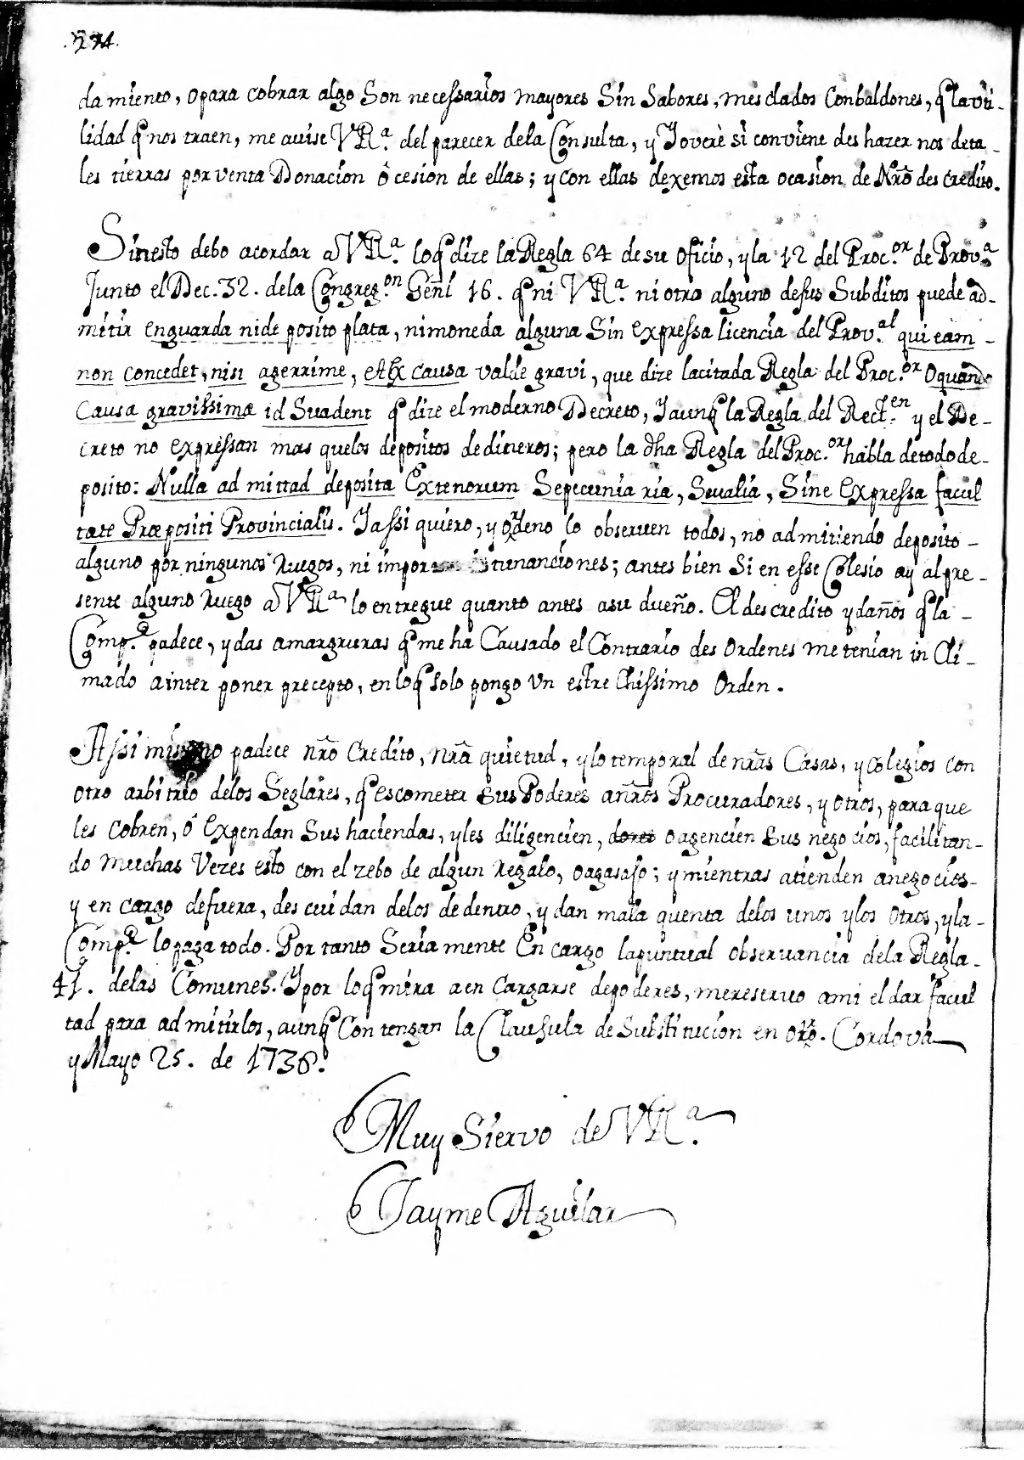 274.
damiento, o para cobrar algo son necessarios mayores Sin Sabores, mesclados con baldones, q̃ la vti-
lidad q̃ nos traen, me auise V Rª. del parecer dela Consulta, y Yo verè si conviene des hazer nos deta-
les tierras por venta Donacion ô cesion de ellas; y con ellas dexemos esta ocasion de Nr̃o des credito.
Sinesto debo acordar a V Rª. loq̃ dize la Regla 64 de su oficio, y la 12 del Proc.ᵒʳ de Prov.ª
Junto el Dec. 32. dela Congreg.ᵒⁿ Gen̄l 16. q̃ ni V Rª. ni otro alguno desus Subditos puede ad-
mitir enguarda nide posito plata, nimoneda alguna Sin expressa licencia del Prov.ᵃˡ qui eam-
non concedet, nisi aegerrime, et Ex causa valde gravi, que dize lacitada Regla del Proc.ᵒʳ O quando
Causa gravissima id Suadent q̃ dize el moderno Decreto, Y aunq̃ la Regla del Rect.ᵉⁿ y el De-
creto no expressan mas quelos depositos de dineros; pero la dh̃a Regla del Proc.ᵒʳ habla detodo de-
posito: Nulla ad mittad deposita Extenorum Sepecunia ria, Seualia, Sine Expressa facul
tate Præpositi Provincialis. Yassi quiero, y ordeno lo obseruen todos, no admitiendo deposito-
alguno por ningunos ruegos, ni impor tunanciones; antes bien Si en esse Colesio ay al pre-
sente alguno ruego a V Rª lo entregue quanto antes asu dueño. El des credito y daños q̃ la-
Comp.ª padece, y das amargruras q̃ me ha Causado el Contrario des ordenes me tenian in Cli-
mado a inter poner precepto, en loq̃ solo pongo vn estre chissimo Orden.
Assi mismo padece nr̃o Credito, nr̃a quietud, y lo temporal de nr̃as Casas, y colegios con
otro arbitrio delos Seglares, q̃ escometer sus Poderes a nr̃os Procuradores, y otros, para que
les cobren, ô Expendan Sus haciendas, y les diligencien, o agencien sus nego cios, facilitan-
do muchas Vezes esto con el zebo de algun regalo, o agasajo; y mientras atienden a nego cios-
y en cargo defuera, des cui dan delos de dentro, y dan mala quenta delos unos y los otros, y la-
Comp.ª lo paga todo. Por tanto Seria mente En cargo la puntual obseruancia dela Regla-
41. delas Comunes. Y por loq̃ mira a en cargarse depoderes, mereseruo ami el dar facul
tad para ad mitirlos, aunq̃ Con tengan la Clausula de Substitucion en otr̃o. Cordova
y Mayo 25. de 1738.
Muy Siervo de V Rª.
Jayme Aguilar